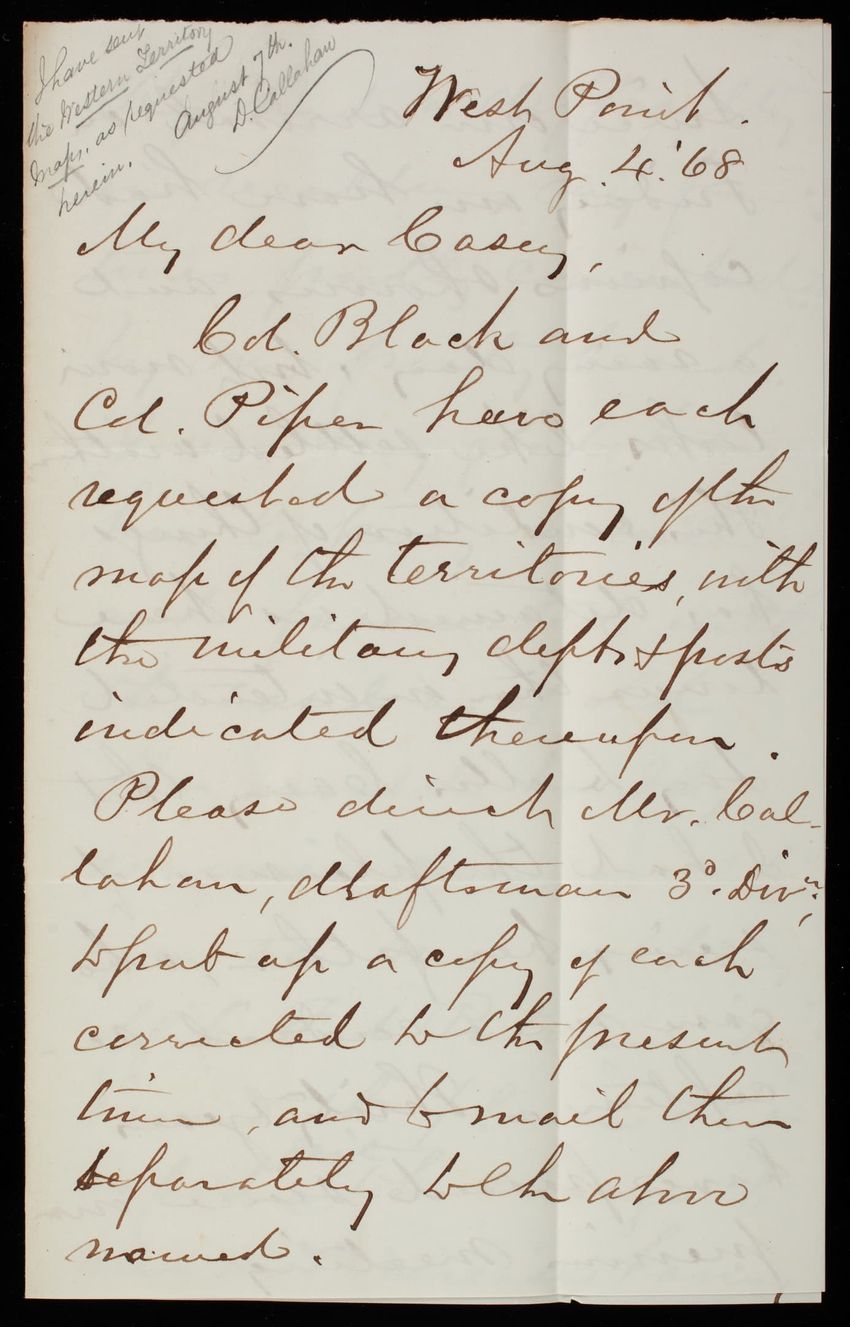 I have sent
the Western Territory
Maps, as requested
herein.
August 7th.
D. Callahan
West Point.
Aug. 4. '68
My dear Casey,
Col. Black and
Col. Piper have each
requested a copy of the
map of the territories, with
the military depts & posts
indicated thereupon.
Please direct Mr. Cal-
lahan, draftsman 3d. Divn.,
to put up a copy of each
corrected to the present
time, and to mail them
separately to the above
named.